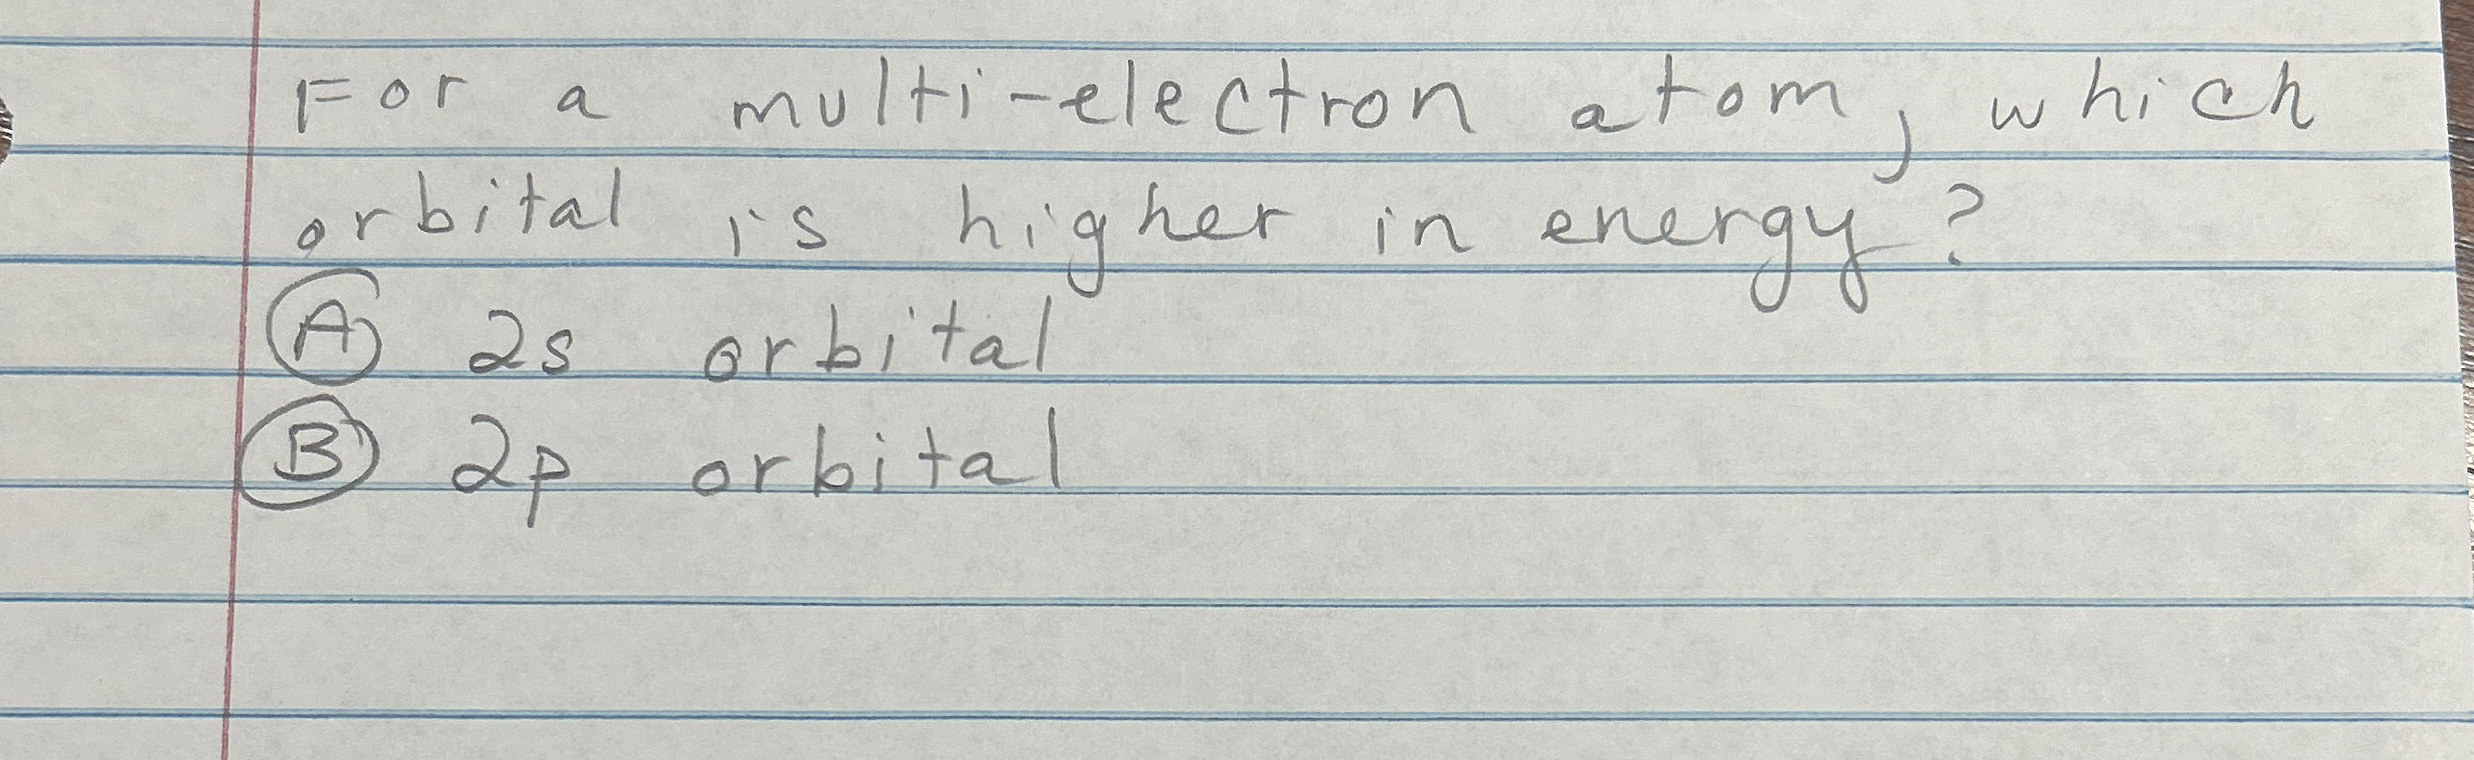 For a multi-electron atom, which
orbital is higher in energy?
A 2s orbital
B 2p orbital